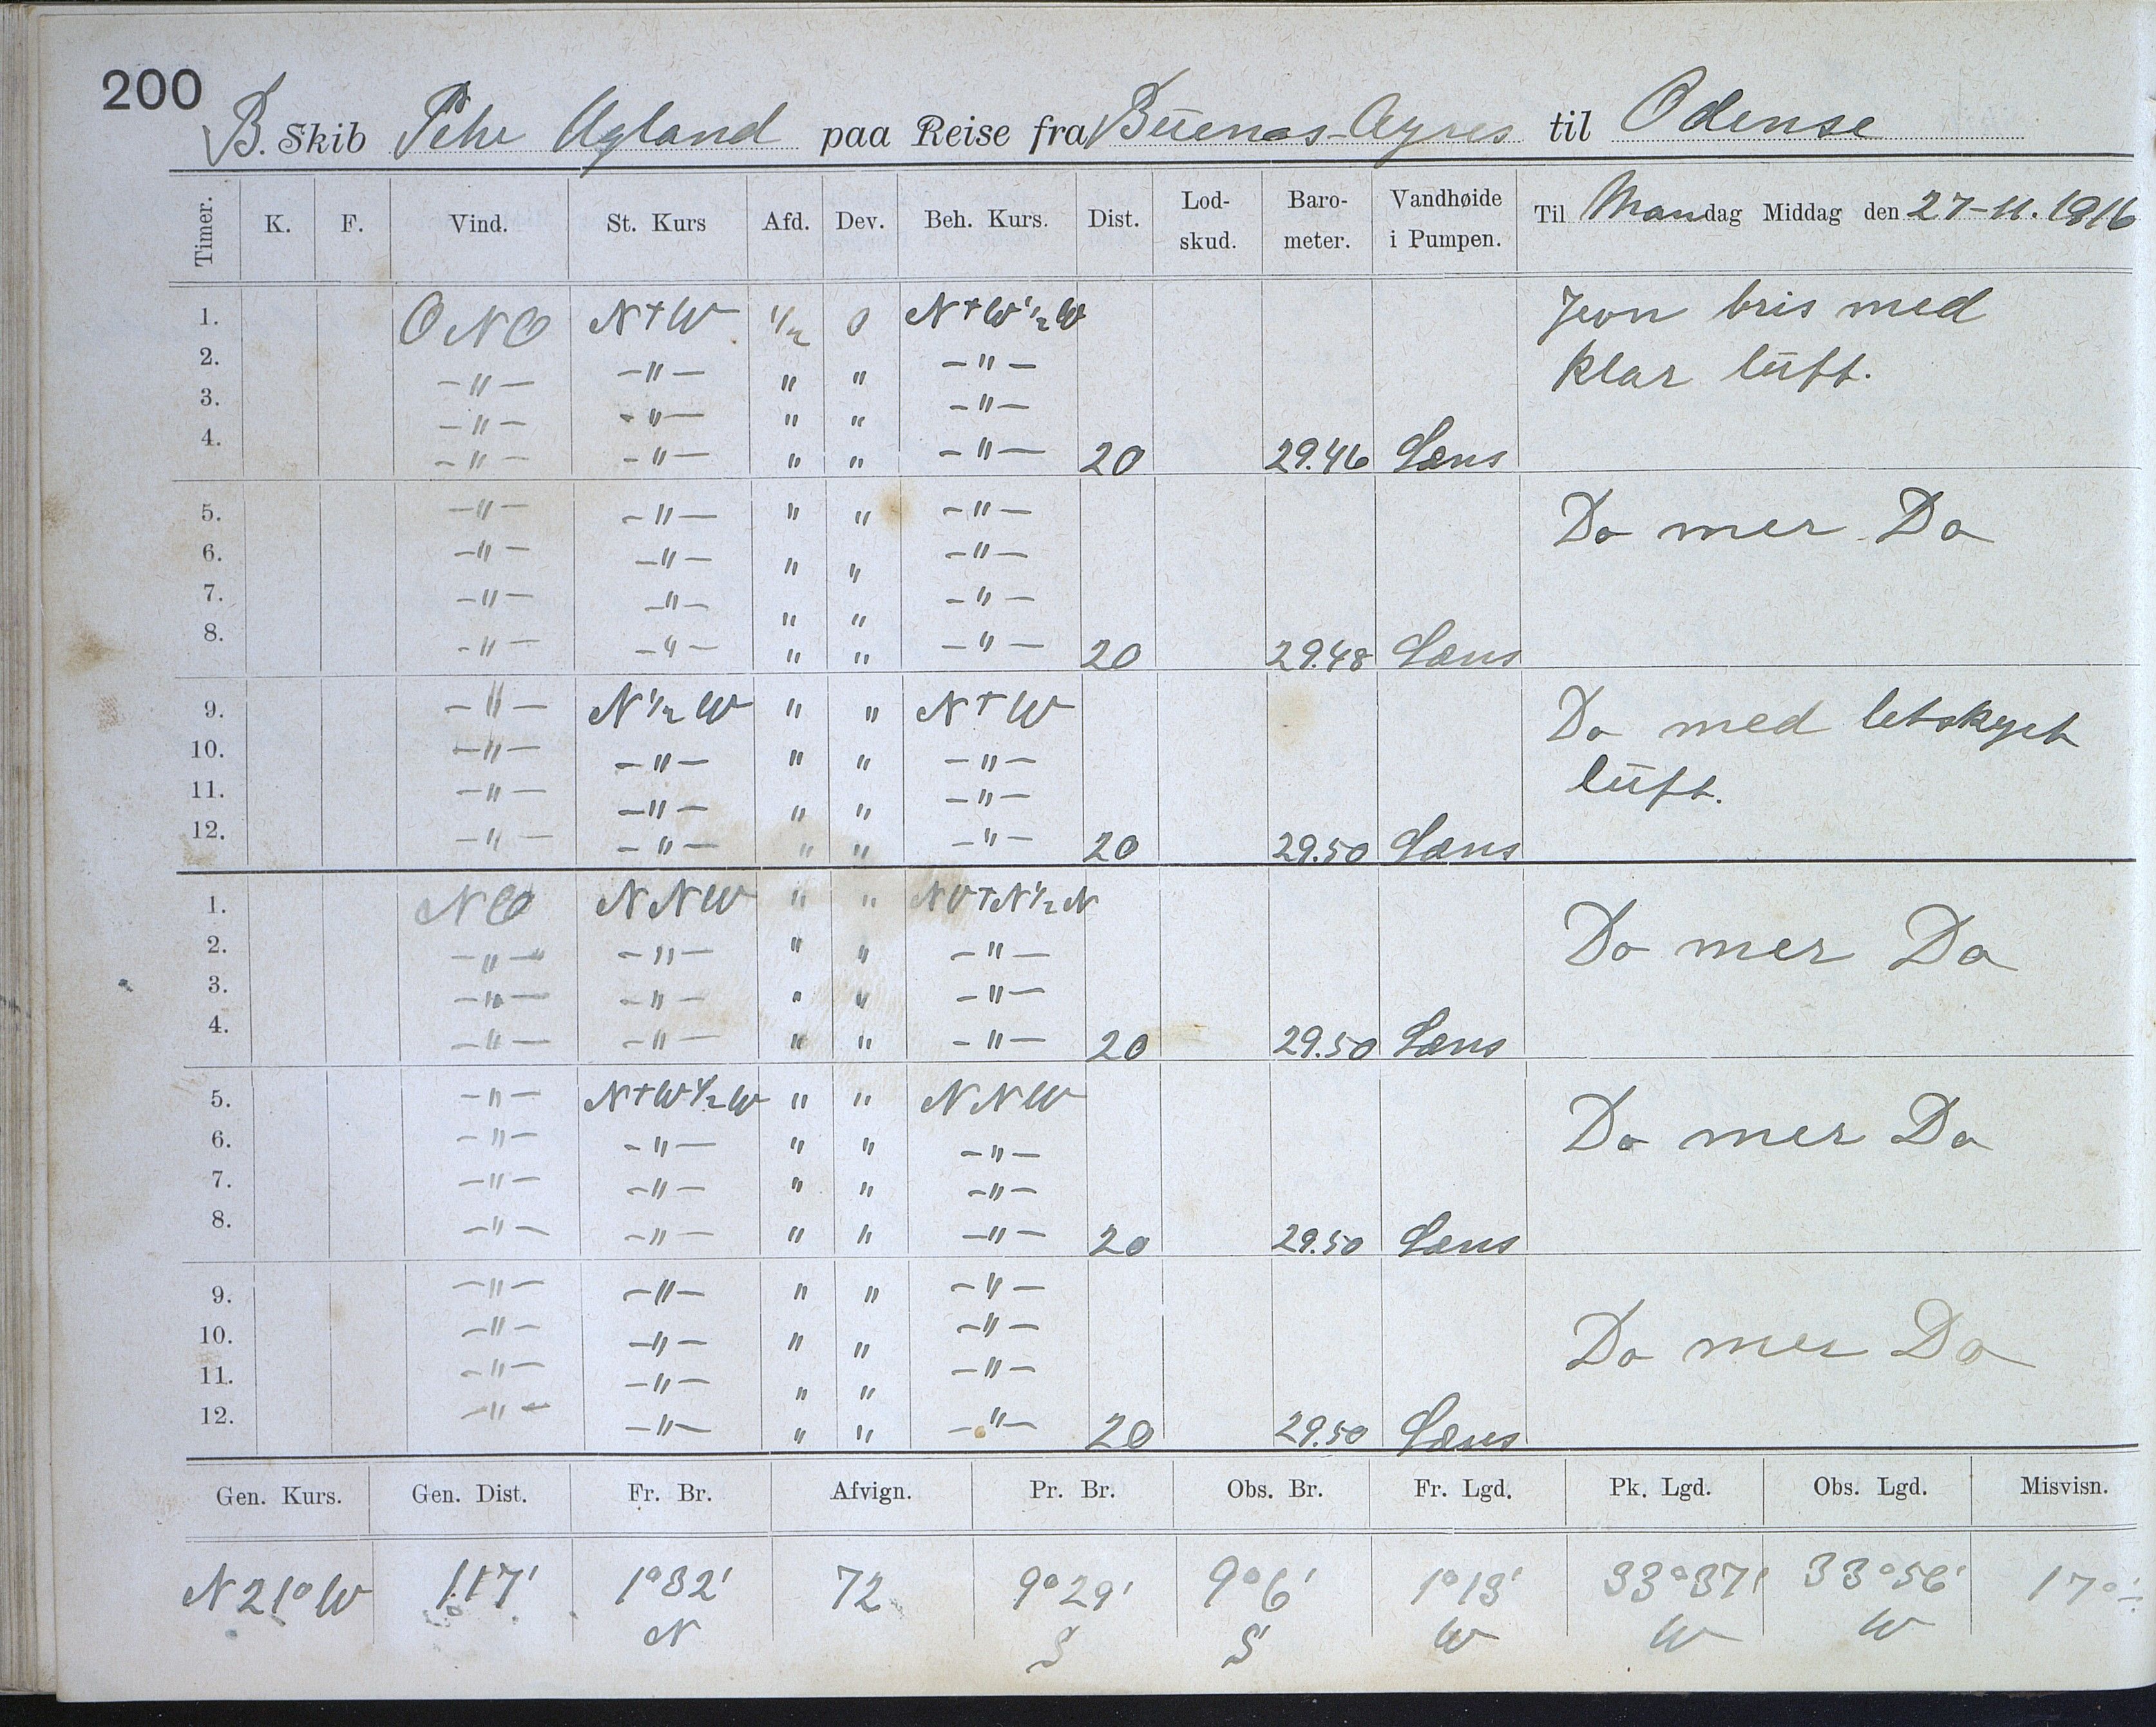 200
B. Skib Pehr Ugland paa Reise fra Buenos-Ayres til Odense
Timer. K. F. Vind. St. Kurs Afd. Dev. Beh. Kurs. Dist. Lod-skud. Baro-meter. Vandhøide i Pumpen. Til Mandag Middag den 27-11.1916
1. ONO N+W 1/2 0 N+W1/2W Jevn bris med
2. -"- -"- " " -"- klar luft.
3. -"- -"- " " -"-
4. -"- -"- " " -"- 20 29.46 Læns
5. -"- -"- " " -"- Do mer Do
6. -"- -"- " " -"-
7. -"- -"- " " -"-
8. -"- -"- " " -"- 20 29.48 Læns
9. -"- N1/2W " " N+W Do med letskyet
10. -"- -"- " " -"- luft.
11. -"- -"- " " -"-
12. -"- -"- " " -"- 20 29.50 Læns
1. NO NNW " " NV+N1/2N Do mer Do
2. -"- -"- " " -"-
3. -"- -"- " " -"-
4. -"- -"- " " -"- 20 29.50 Læns
5. -"- N+W1/2W " " NNW Do mer Do
6. -"- -"- " " -"-
7. -"- -"- " " -"-
8. -"- -"- " " -"- 20 29.50 Læns
9. -"- -"- " " -"- Do mer Do
10. -"- -"- " " -"-
11. -"- -"- " " -"-
12. -"- -"- " " -"- 20 29.50 Læns
Gen. Kurs. Gen. Dist. Fr. Br. Afvign. Pr. Br. Obs. Br. Fr. Lgd. Pk. Lgd. Obs. Lgd. Misvisn.
N21°W 117' 1°32' 72 9°29' 9°6' 1°13' 33°37' 33°56' 17°
N S S W W W